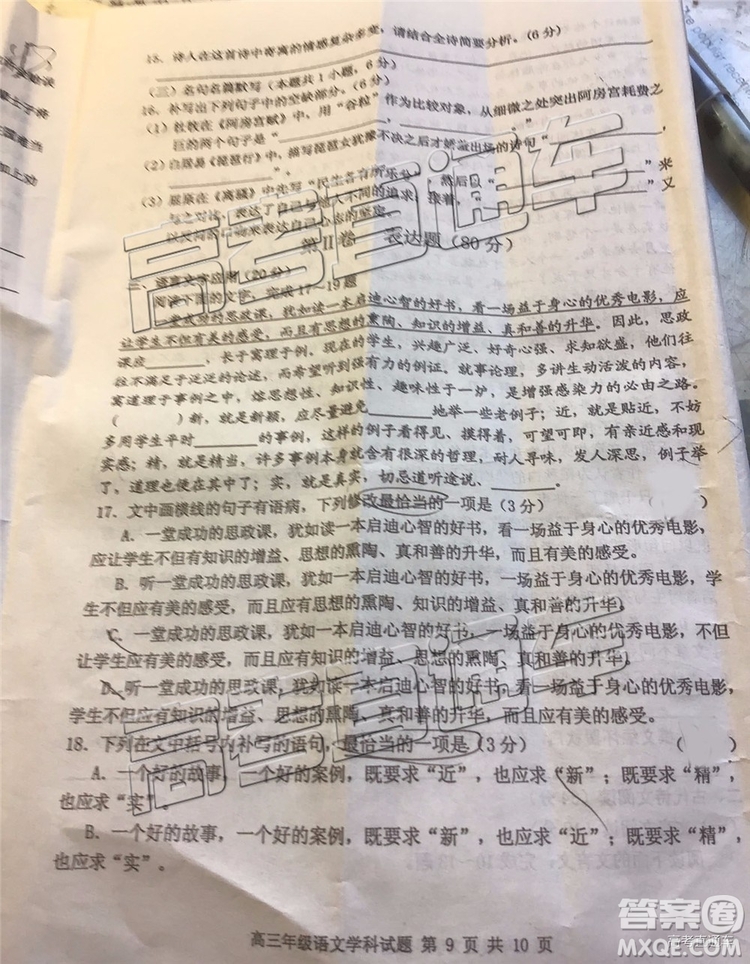 15. 诗人在这首诗中寄寓的情感复杂多变，请结合全诗简要分析。(6分)
(三) 名句名篇默写（本题共1小题，6分）
16. 补写出下列句子中的空缺部分。(6分)
(1) 杜牧在《阿房宫赋》中，用“谷粒”作为比较对象，从细微之处突出阿房宫耗费之
巨的两个句子是“________，________。”
(2) 白居易《琵琶行》中，描写琵琶女犹豫不决之后才娇羞出场的诗句“________
________，________。”
(3) 屈原在《离骚》中先写“民生各有所乐兮”，然后以“________”来
与之对比，表达了自己与他人不同的追求；接着，“________”又
以反问的口吻来表达自己心志的坚定。
第Ⅱ卷 表达题（80分）
二、语言文字应用（20分）
阅读下面的文字，完成17~19题
一堂成功的思政课，犹如读一本启迪心智的好书，看一场益于身心的优秀电影，应
让学生不但有美的感受，而且有思想的熏陶、知识的增益、真和善的升华。因此，思政
课应________，长于寓理于例。现在的学生，兴趣广泛、好奇心强、求知欲盛，他们往
往不满足于泛泛的论述，而希望听到强劲有力的例证。就事论理，多讲生动活泼的内容，
寓道理于事例之中，熔思想性、知识性、趣味性于一炉，是增强感染力的必由之路。
（ ）新，就是新颖，应尽量避免________地举一些老例子；近，就是贴近，
多用学生平时________的事例，这样的例子看得见、摸得着，可望可即，有亲近感和现
实感；精，就是精当，许多事例本身就包含有很深的哲理，耐人寻味，发人深思，例子举
了，道理也便在其中了；实，就是真实，切忌道听途说、________。
17. 文中画横线的句子有语病，下列修改最恰当的一项是(3分) （ ）
A. 一堂成功的思政课，犹如读一本启迪心智的好书，看一场益于身心的优秀电影，
应让学生不但有知识的增益、思想的熏陶、真和善的升华，而且应有美的感受。
B. 听一堂成功的思政课，犹如读一本启迪心智的好书，看一场益于身心的优秀电影，学
生不但应有美的感受，而且应有思想的熏陶、知识的增益、真和善的升华。
C. 一堂成功的思政课，犹如一本启迪心智的好书，一场益于身心的优秀电影，不但
让学生应有美的感受，而且应有知识的增益、思想的熏陶、真和善的升华。
D. 听一堂成功的思政课，犹如读一本启迪心智的好书，看一场益于身心的优秀电影，
学生不但应有知识的增益、思想的熏陶、真和善的升华，而且应有美的感受。
18. 下列在文中括号内补写的语句，最恰当的一项是(3分) （ ）
A. 一个好的故事，一个好的案例，既要求“近”，也应求“新”；既要求“精”，
也应求“实”。
B. 一个好的故事，一个好的案例，既要求“新”，也应求“近”；既要求“精”，
也应求“实”。
高三年级语文学科试题 第 9 页 共 10 页
高考直通车
高考直通车
答案圈
MXQE.COM
高考直通车